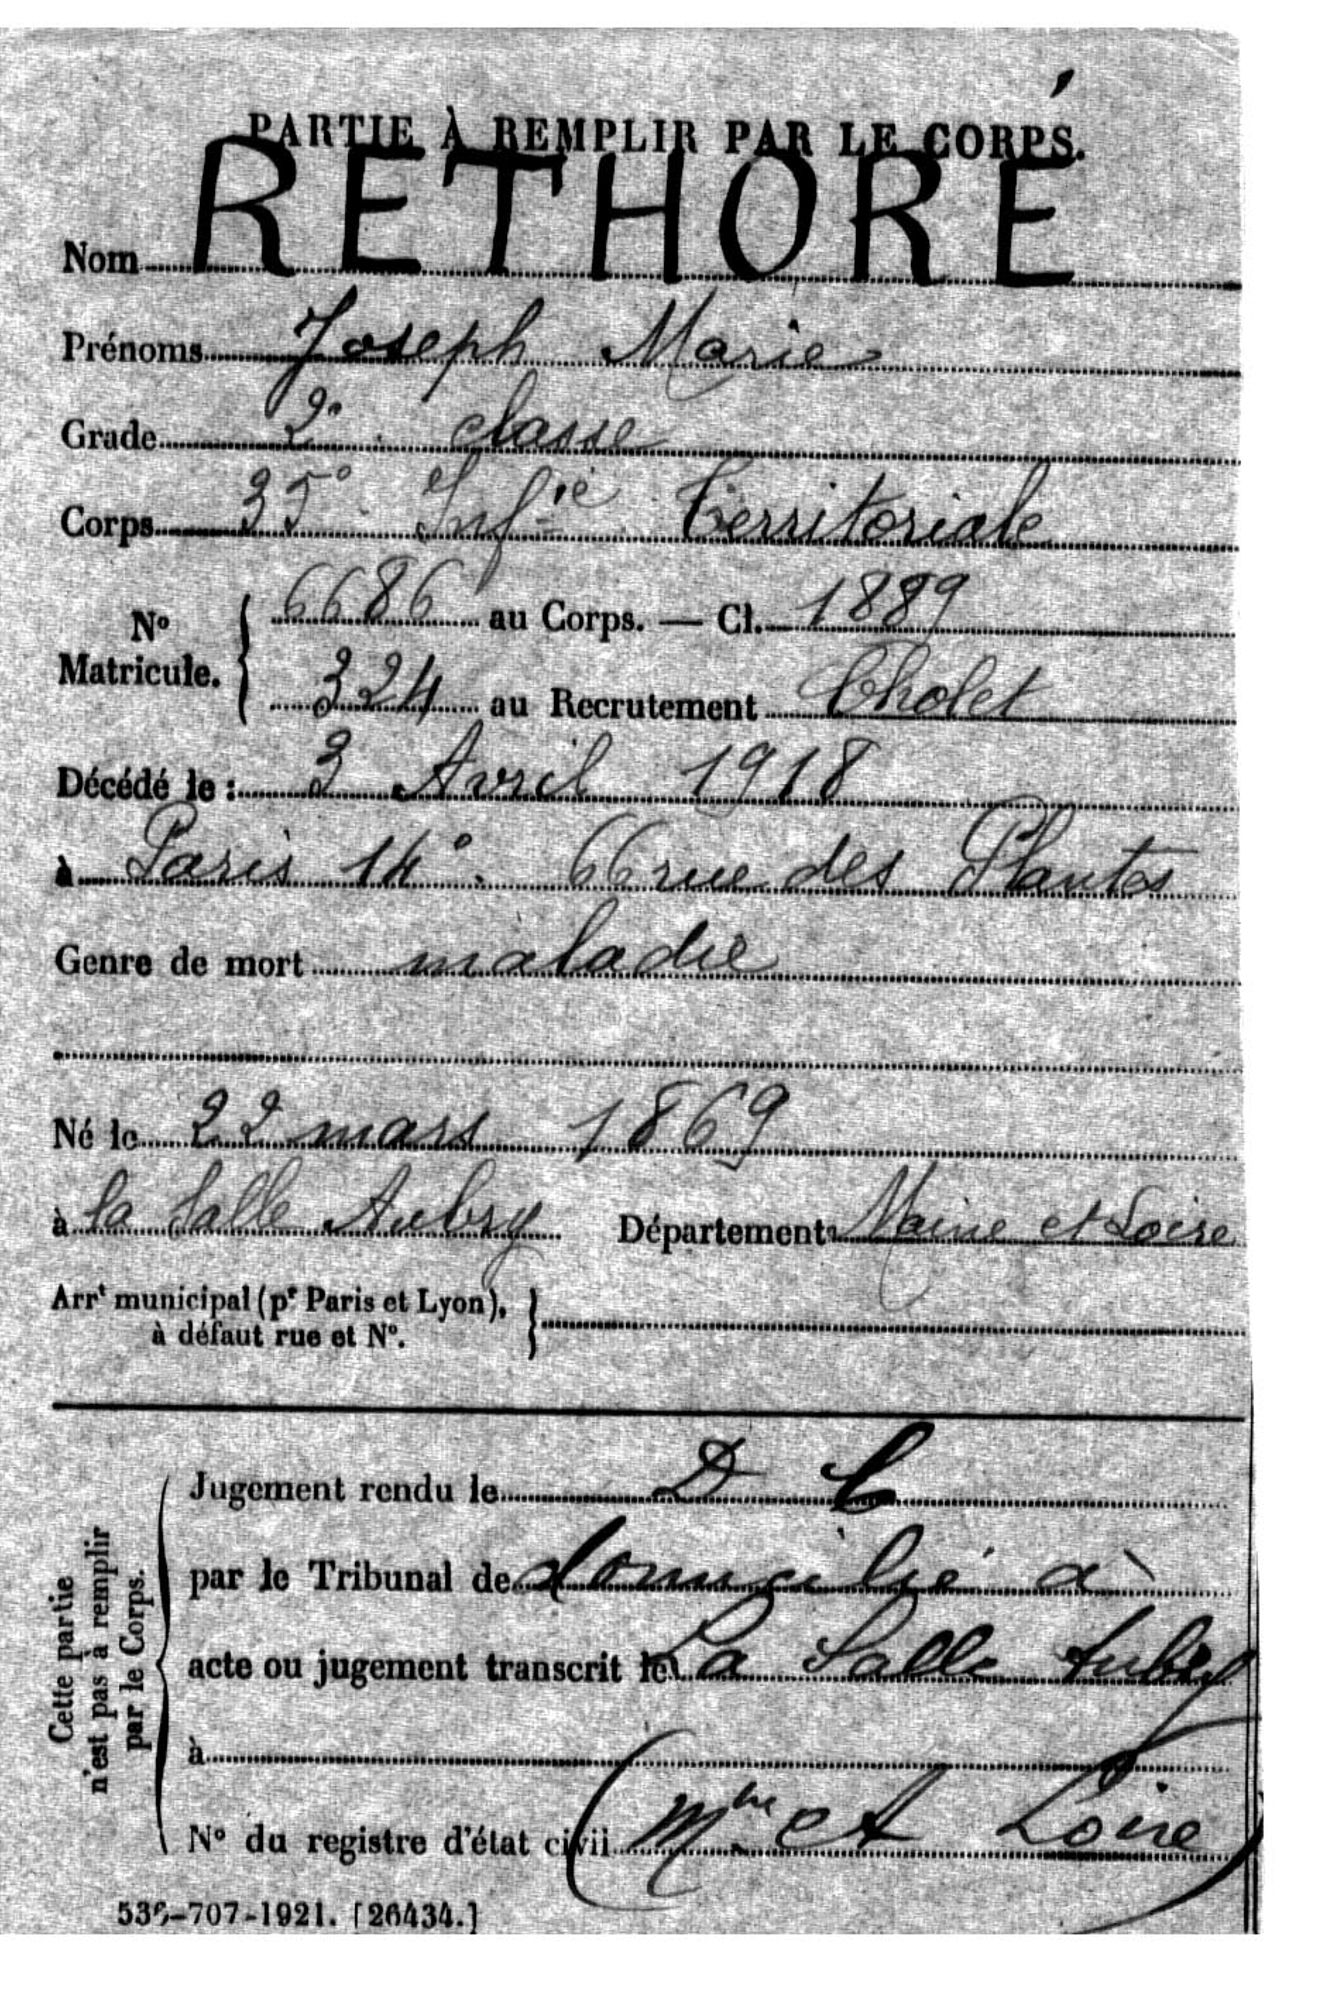 PARTIE À REMPLIR PAR LE CORPS.
Nom RETHORÉ
Prénoms Joseph Marie
Grade 2e classe
Corps 35° Infie Territoriale
N° Matricule. { 6686 au Corps. — Cl. 1889
324 au Recrutement Cholet
Décédé le : 3 Avril 1918
à Paris 14° . 66 rue des Plantes
Genre de mort maladie
Né le 22 mars 1869
à la Salle Aubry Département Maine et Loire
Arrt municipal (pr Paris et Lyon), }
à défaut rue et N°.
Cette partie n'est pas à remplir par le Corps.
Jugement rendu le D C
par le Tribunal de domicilié à
acte ou jugement transcrit le La Salle Aubry
à
N° du registre d'état civil (Mne et Loire)
536-707-1921. [26434.]